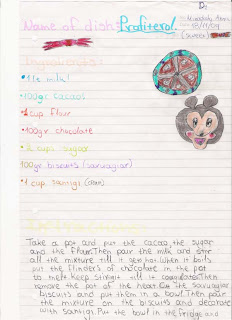 Name of dish: Profiterol
(sweet)
Ingredients:
• 1 lt milk!
• 100gr cacao
• 1 cup flour
• 100gr chocolate
• 2 cups sugar
100gr biscuits (savayiar)
• 1 cup santigi (cream)
Take a pot and put the cacao, the sugar
and the flour. Then pour the milk and stir
all the mixture till it gets hot. When it boils
put the flinders of chocolate in the pot
to melt. Keep stiring till it coagulates. Then
remove the pot of the heat. Cut the savayiar
biscuits and put them in a bowl. Then pour
the mixture on the biscuits and decorate
with santigi. Put the bowl in the fridge and